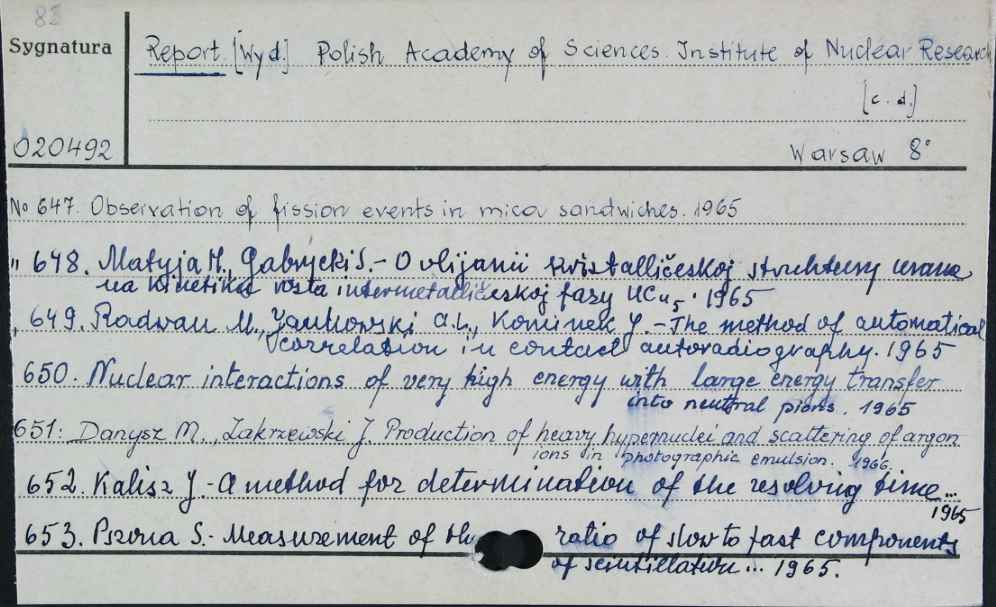 83
Sygnatura
Report. [Wyd.] Polish Academy of Sciences. Institute of Nuclear Research
[c.d.]
020492
Warsaw 8°
No 647. Observation of fission events in mica sandwiches. 1965
" 648. Matyja H., Gabryckiś. - O vlijanii kristalličeskoj struktury urana
na kinetiku rosta intermetalličeskoj fazy UCu5. 1965
649. Radwan M., Jankowski A.L., Kominek J. - The method of automatical
correlation in contact autoradiography. 1965
650. Nuclear interactions of very high energy with large energy transfer
into neutral pions. 1965
651. Danysz M., Zakrzewski J. Production of heavy hypernuclei and scattering of argon
ions in photographic emulsion. 1966.
652. Kalisz J. - A method for determination of the resolving time...
1965
653. Pszona S. - Measurement of the ratio of slow to fast components
of scintillation... 1965.